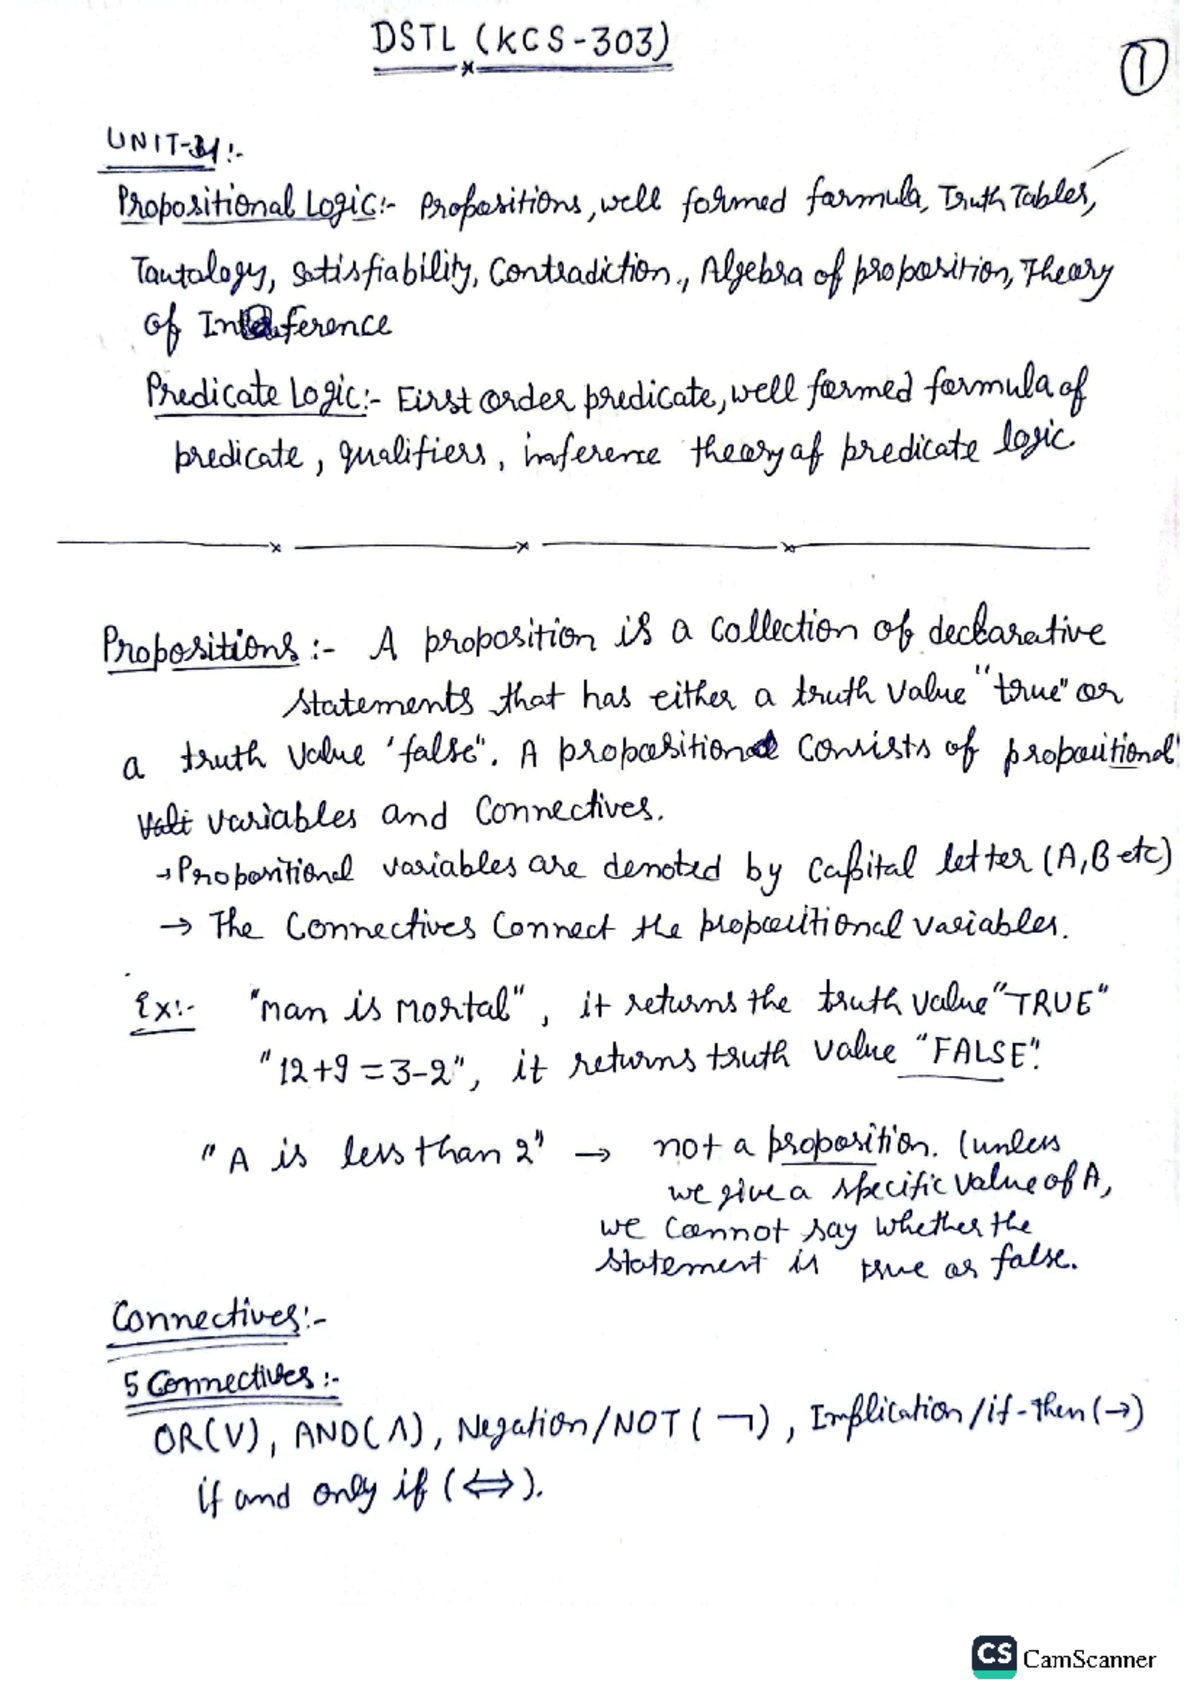 DSTL (KCS-303)
1
UNIT-:-
Propositional Logic:- Propositions, well formed formula, Truth Tables,
Tautology, Satisfiability, Contradiction, Algebra of proposition, Theory
of Inference
Predicate Logic:- First order predicate, well formed formula of
predicate, qualifiers, inference theory of predicate logic
Propositions :- A proposition is a collection of declarative
statements that has either a truth value "true" or
a truth value 'false". A proposition consists of propositional
variables and Connectives.
→ Propositional variables are denoted by Capital letter (A, B etc)
→ The Connectives Connect the propositional variables.
Ex:- "man is mortal", it returns the truth value "TRUE"
"12+9 = 3-2", it returns truth value "FALSE".
"A is less than 2" → not a proposition. (unless
we give a specific value of A,
we cannot say whether the
statement is true or false.
Connectives:-
5 Connectives :-
OR(V), AND(Λ), Negation/NOT (¬), Implication/if-then(→)
if and only if (⇔).
CS CamScanner